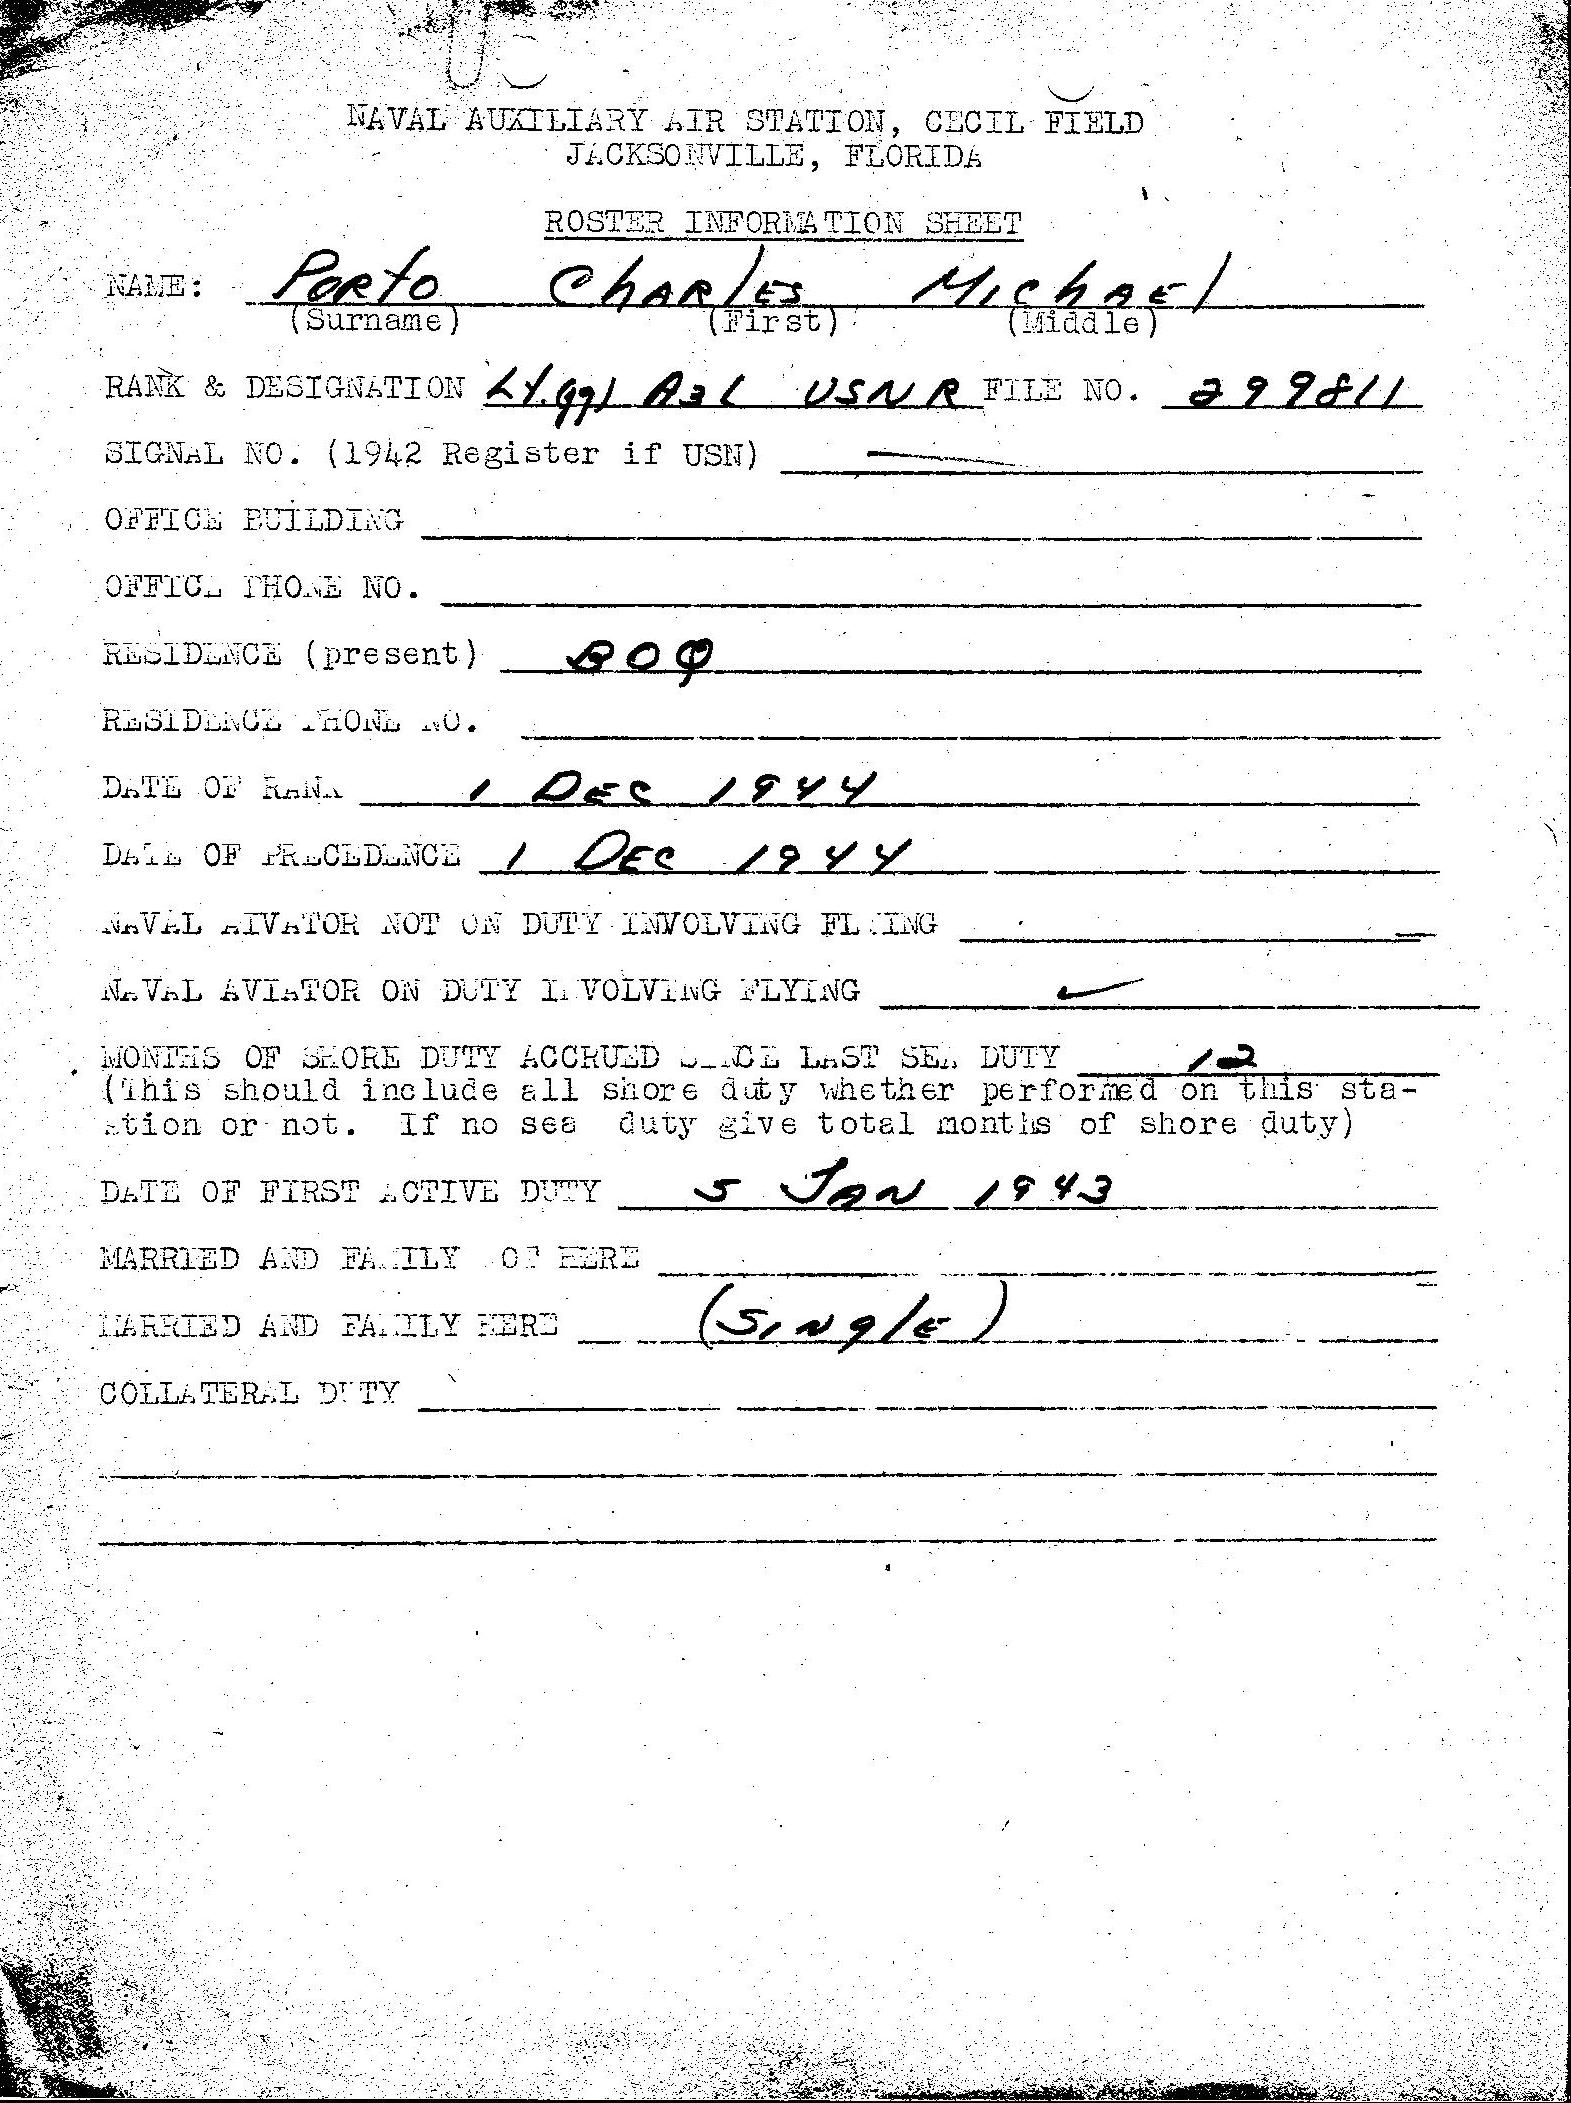 NAVAL AUXILIARY AIR STATION, CECIL FIELD
JACKSONVILLE, FLORIDA
ROSTER INFORMATION SHEET
NAME: Porto Charles Michael
(Surname) (First) (Middle)
RANK & DESIGNATION Lt.(jg) A3L USNR FILE NO. 299811
SIGNAL NO. (1942 Register if USN) —
OFFICE BUILDING
OFFICE PHONE NO.
RESIDENCE (present) BOQ
RESIDENCE PHONE NO.
DATE OF RANK 1 DEC 1944
DATE OF PRECEDENCE 1 DEC 1944
NAVAL AIVATOR NOT ON DUTY INVOLVING FLYING
NAVAL AVIATOR ON DUTY INVOLVING FLYING ✓
MONTHS OF SHORE DUTY ACCRUED SINCE LAST SEA DUTY 12
(This should include all shore duty whether performed on this sta-
ation or not. If no sea duty give total months of shore duty)
DATE OF FIRST ACTIVE DUTY 5 JAN 1943
MARRIED AND FAMILY NOT HERE
MARRIED AND FAMILY HERE (Single)
COLLATERAL DUTY